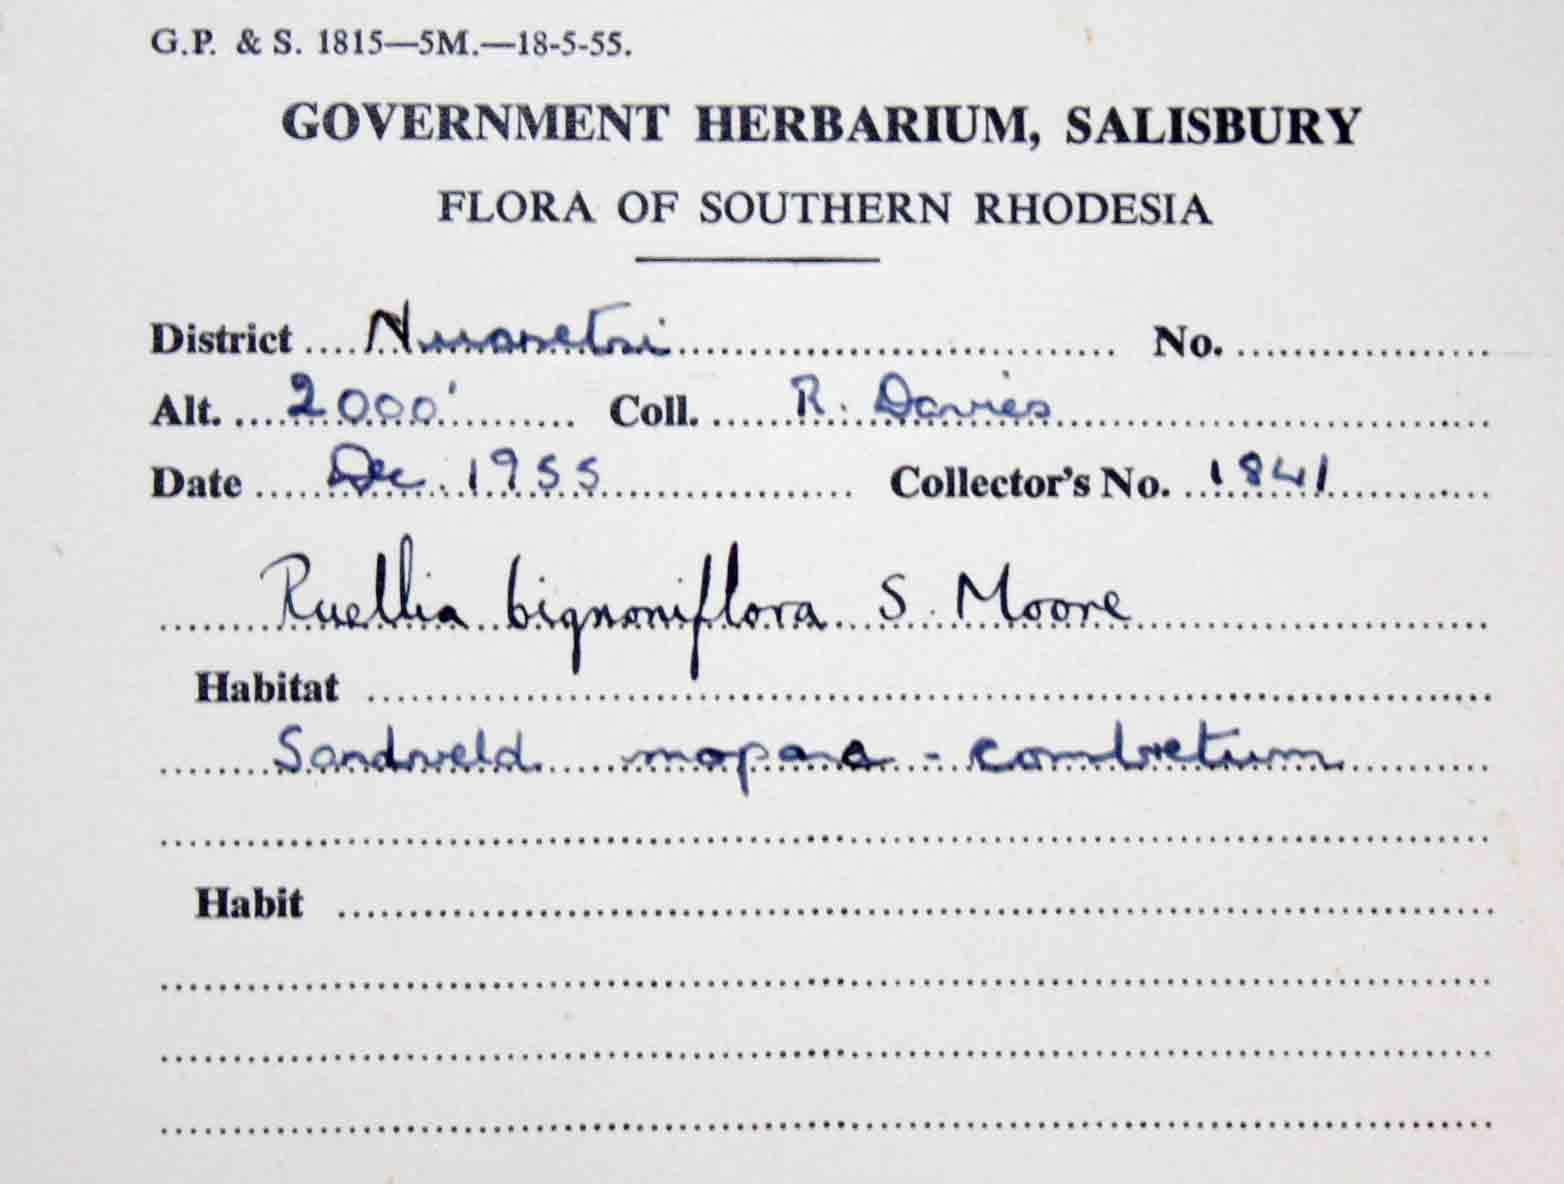 G.P. & S. 1815—5M.—18-5-55.
GOVERNMENT HERBARIUM, SALISBURY
FLORA OF SOUTHERN RHODESIA
District Nuanetsi No.
Alt. 2000' Coll. R. Davies
Date Dec. 1955 Collector's No. 1841
Ruellia bignoniflora S. Moore
Habitat
Sandveld mopane - combretum
Habit